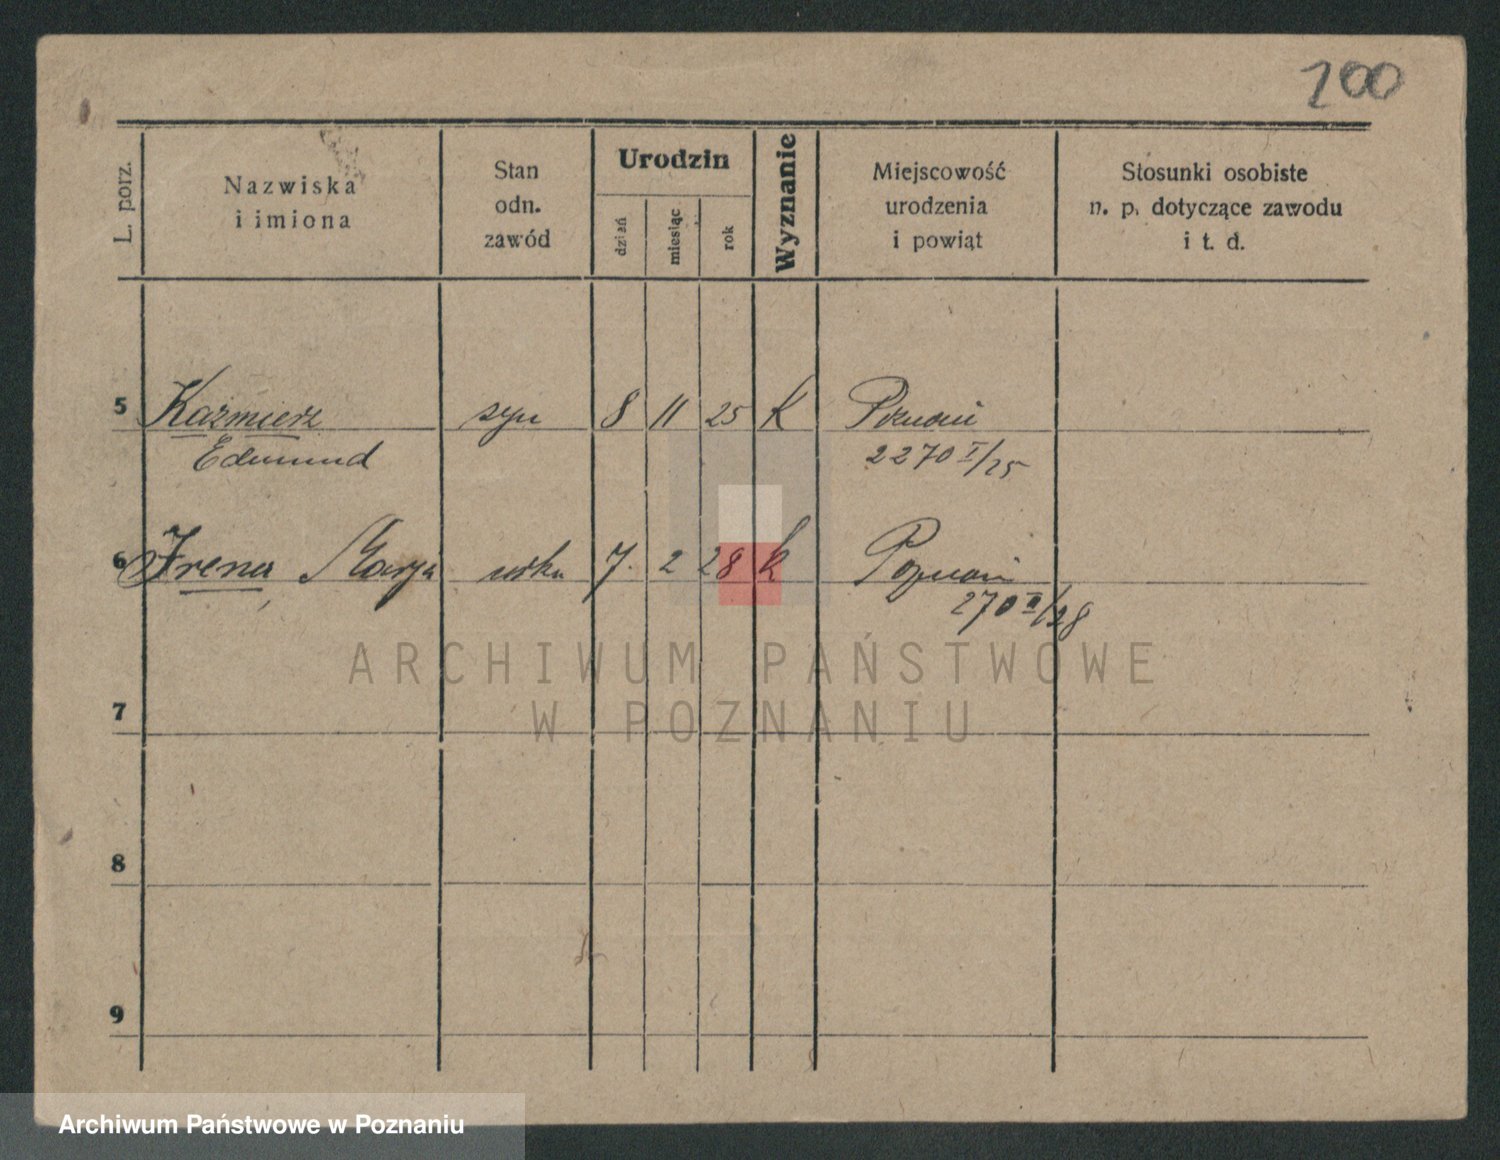 200
L. porz.
Nazwiska
i imiona
Stan
odn.
zawód
Urodzin
dzień
miesiąc
rok
Wyznanie
Miejscowość
urodzenia
i powiat
Stosunki osobiste
n. p. dotyczące zawodu
i t. d.
5 Kazmierz syn 8 11 25 K Poznań
Edmund 2270 I/25
6 Irena Marja 7 2 28 k Poznań
270 II/28
ARCHIWUM PAŃSTWOWE
W POZNANIU
7
8
9
Archiwum Państwowe w Poznaniu